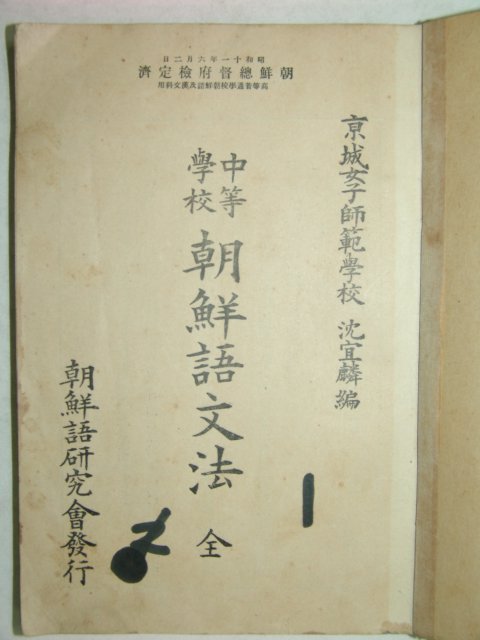 日二月六年一十和昭
濟定檢府督總鮮朝
用科文漢及語鮮朝校學通普等高
京城女子師範學校 沈宜麟編
中等
學校
朝鮮語文法 全
朝鮮語研究會發行